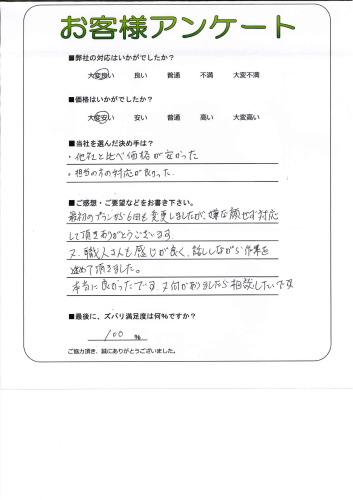 お客様アンケート
■弊社の対応はいかがでしたか？
大変良い 良い 普通 不満 大変不満
■価格はいかがでしたか？
大変安い 安い 普通 高い 大変高い
■当社を選んだ決め手は？
・他社と比べ価格が安かった
・担当の方の対応が良かった.
■ご感想・ご要望などをお書き下さい。
最初のプランから6回も変更しましたが、嫌な顔せず対応
して頂きありがとうございます.
又、職人さんも感じが良く、話しながら作業を
進めて頂きました。
本当に良かったです、又何かありましたら相談したいです
■最後に、ズバリ満足度は何%ですか？
100 %
ご協力頂き、誠にありがとうございました。